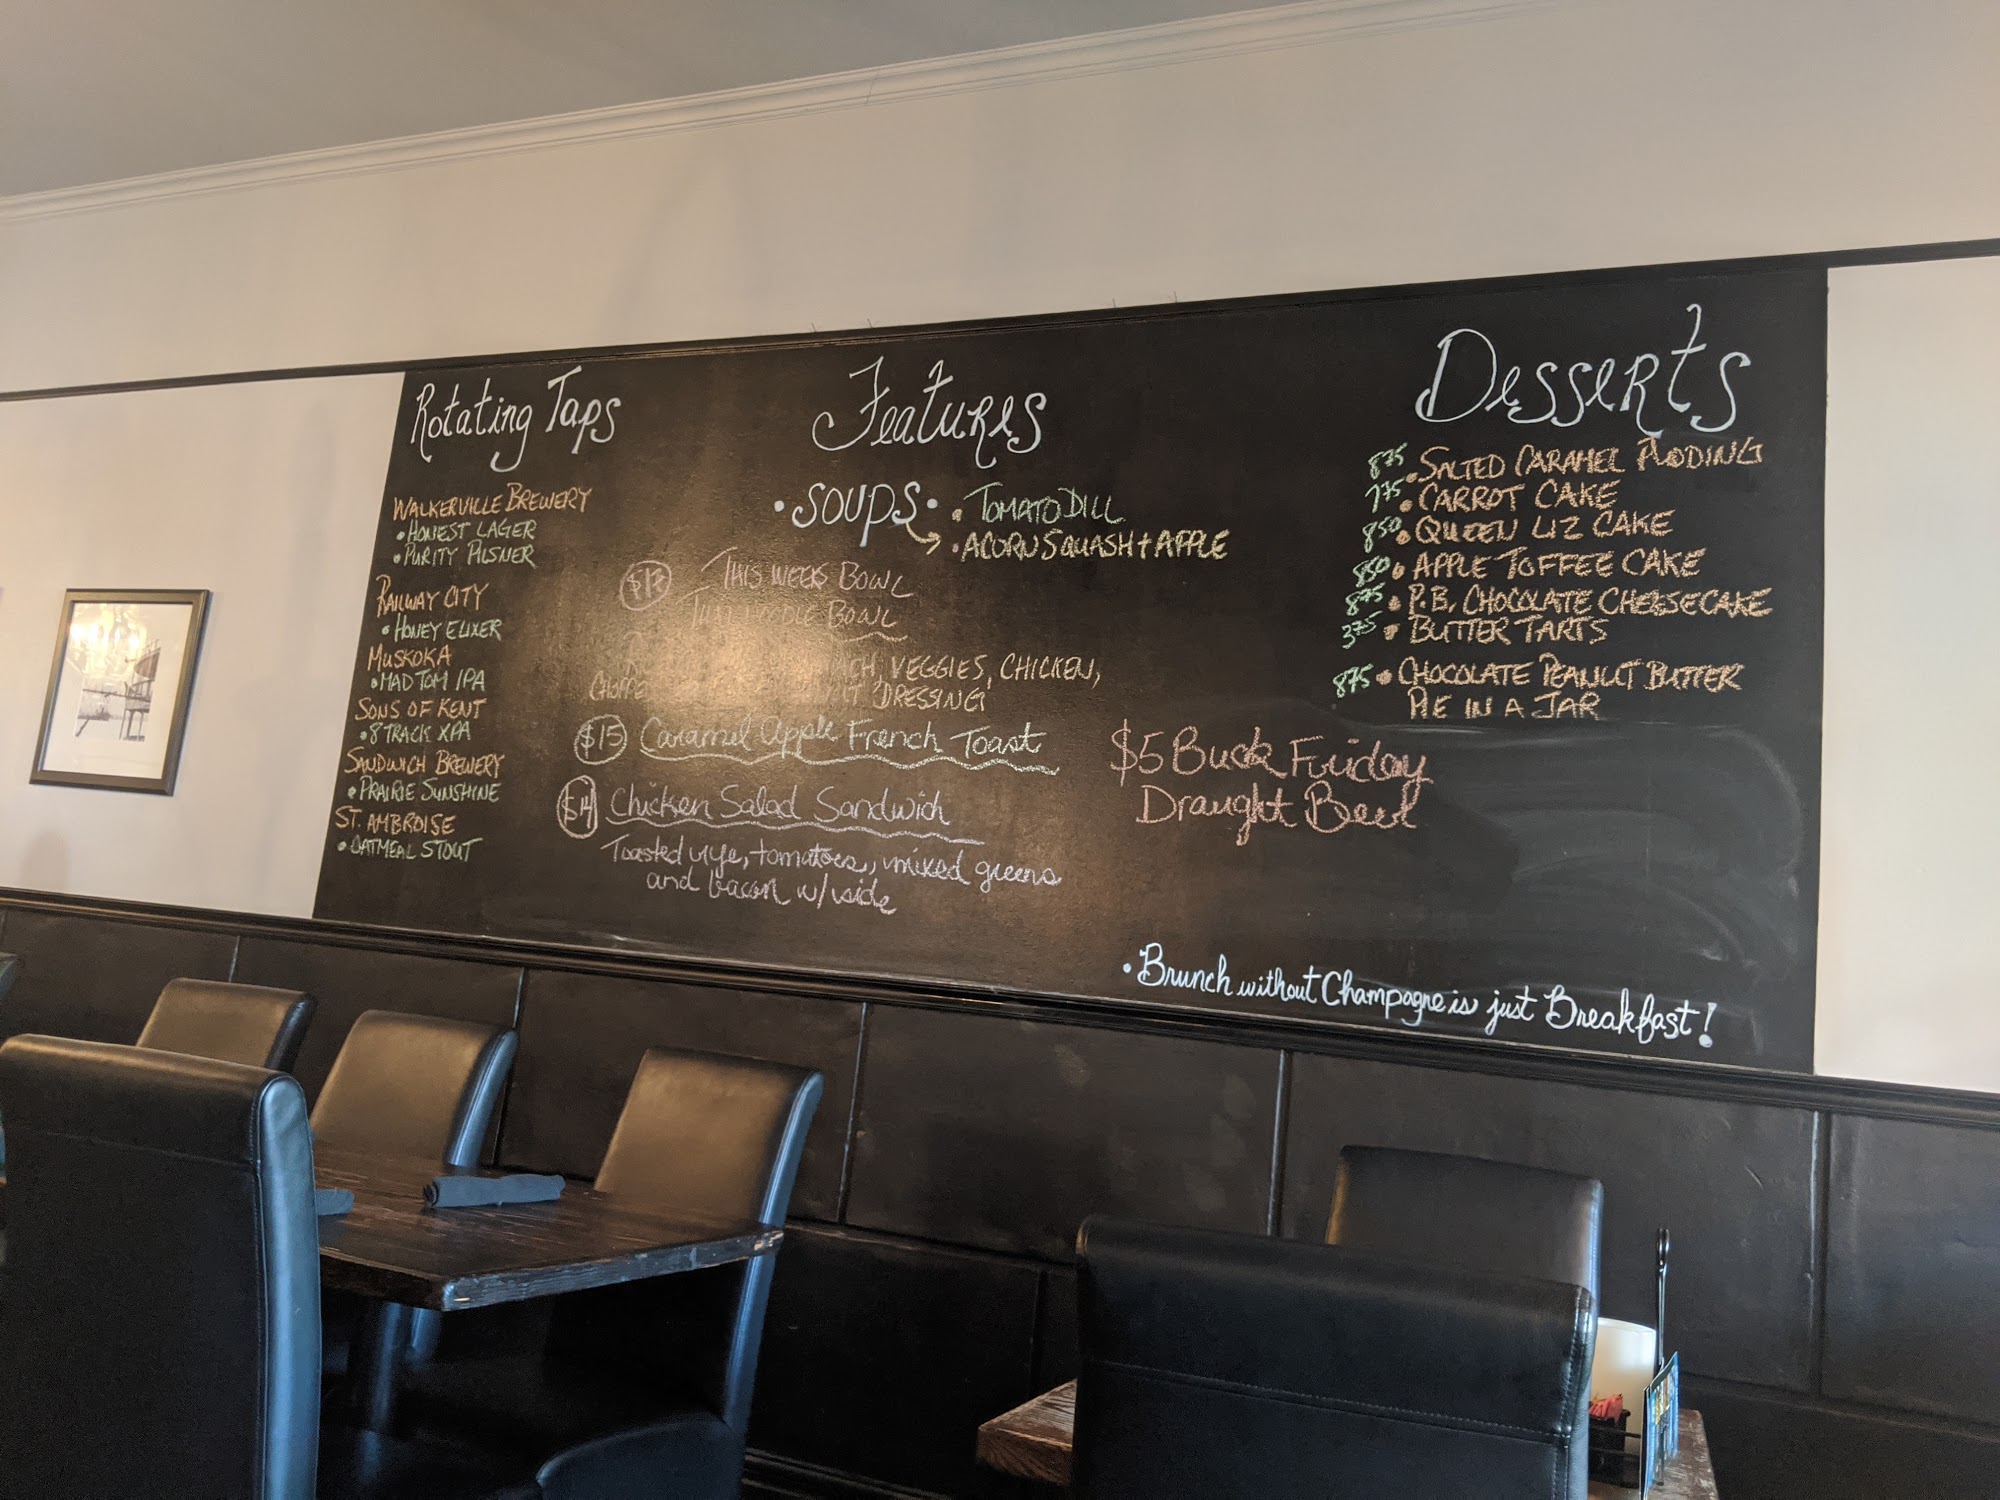 Rotating Taps
WALKERVILLE BREWERY
• HONEST LAGER
• PURITY PILSNER
RAILWAY CITY
• HONEY ELIXER
MUSKOKA
• MAD TOM IPA
SONS OF KENT
• 8 TRACK XPA
SANDWICH BREWERY
• PRAIRIE SUNSHINE
ST. AMBROISE
• OATMEAL STOUT
Features
• SOUPS •
• TOMATO DILL
• ACORN SQUASH + APPLE
THIS WEEKS BOWL
BOWL
VEGGIES, CHICKEN,
DRESSING
$15 Caramel apple French Toast
$14 Chicken Salad Sandwich
Toasted rye, tomatoes, mixed greens
and bacon w/ side
$5 Buck Friday
Draught Beer
Desserts
875 • SALTED CARAMEL PUDDING
775 • CARROT CAKE
850 • QUEEN LIZ CAKE
850 • APPLE TOFFEE CAKE
875 • P.B. CHOCOLATE CHEESECAKE
375 • BUTTER TARTS
875 • CHOCOLATE PEANUT BUTTER
PIE IN A JAR
• Brunch without Champagne is just Breakfast!